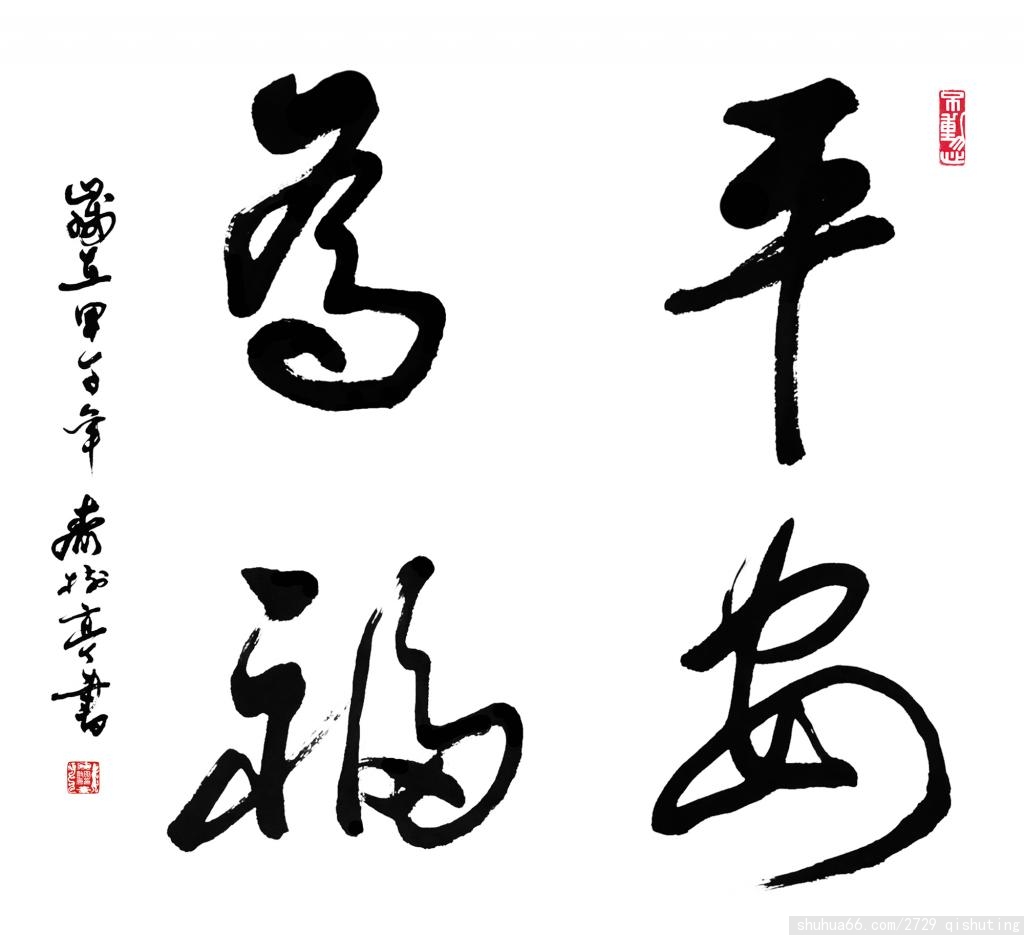 平安
為福
歲在甲午年 齊樹亭書
shuhua66.com/2729 qishuting